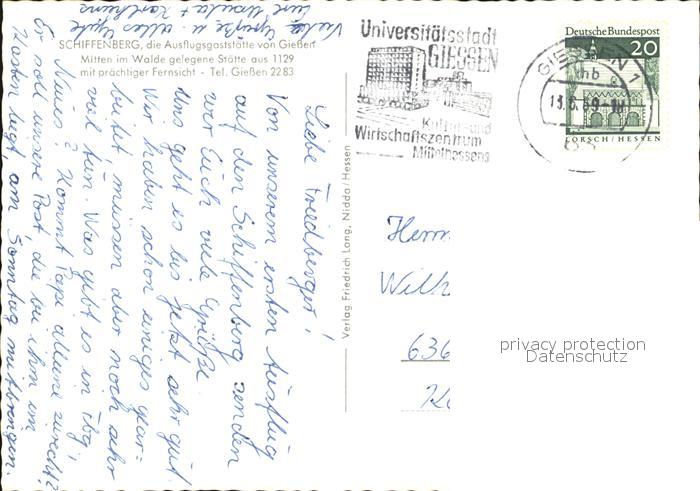 SCHIFFENBERG, die Ausflugsgaststätte von Gießen
Mitten im Walde gelegene Stätte aus 1129
mit prächtiger Fernsicht - Tel. Gießen 2283
Liebe Friedberger!
Von unserem ersten Ausflug
auf den Schiffenberg senden
wir Euch viele Grüße.
Uns geht es bis jetzt sehr gut.
Wir haben schon einiges gear-
beitet, müssen aber noch sehr
viel tun. Was gibt es in Fbg.
Neues? Kommt Papa alleine zurecht?
Er soll unsere Post, die bei ihm im
Kasten liegt, am Sonntag mitbringen.
Viele Grüße u. alles Gute
Eure
Verlag Friedrich Lang, Nidda/Hessen
Universitätsstadt
GIESSEN
Kultur- und
Wirtschaftszentrum
Mittelhessens
GIESSEN 1
hb
13.6.69
Deutsche Bundespost
20
LORSCH/HESSEN
Herrn
Wilh
636
privacy protection
Datenschutz